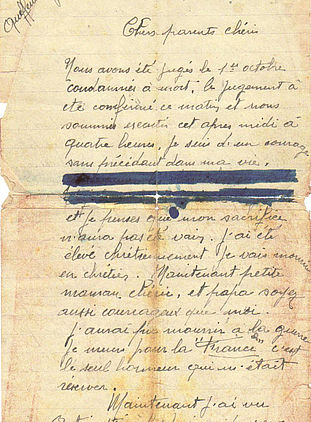 Chers parents chéris
Nous avons été jugés le 1er octobre
condamnés à mort, le jugement a
été confirmé ce matin et nous
sommes cet après midi à
quatre heures. Je suis d'un courage
sans précédant dans ma vie.
et Je penses que mon sacrifice
n'aura pas été vain. J'ai été
élevé chrétiennement Je vais mourir
en chrétien. Maintenant petite
maman chérie, et papa soyez
aussi courrageaux que moi.
J'aurai pu mourrir à la guerre
Je meurs pour la France c'est
le seul honneur qui m'était
réserver.
Maintenant j'ai vu